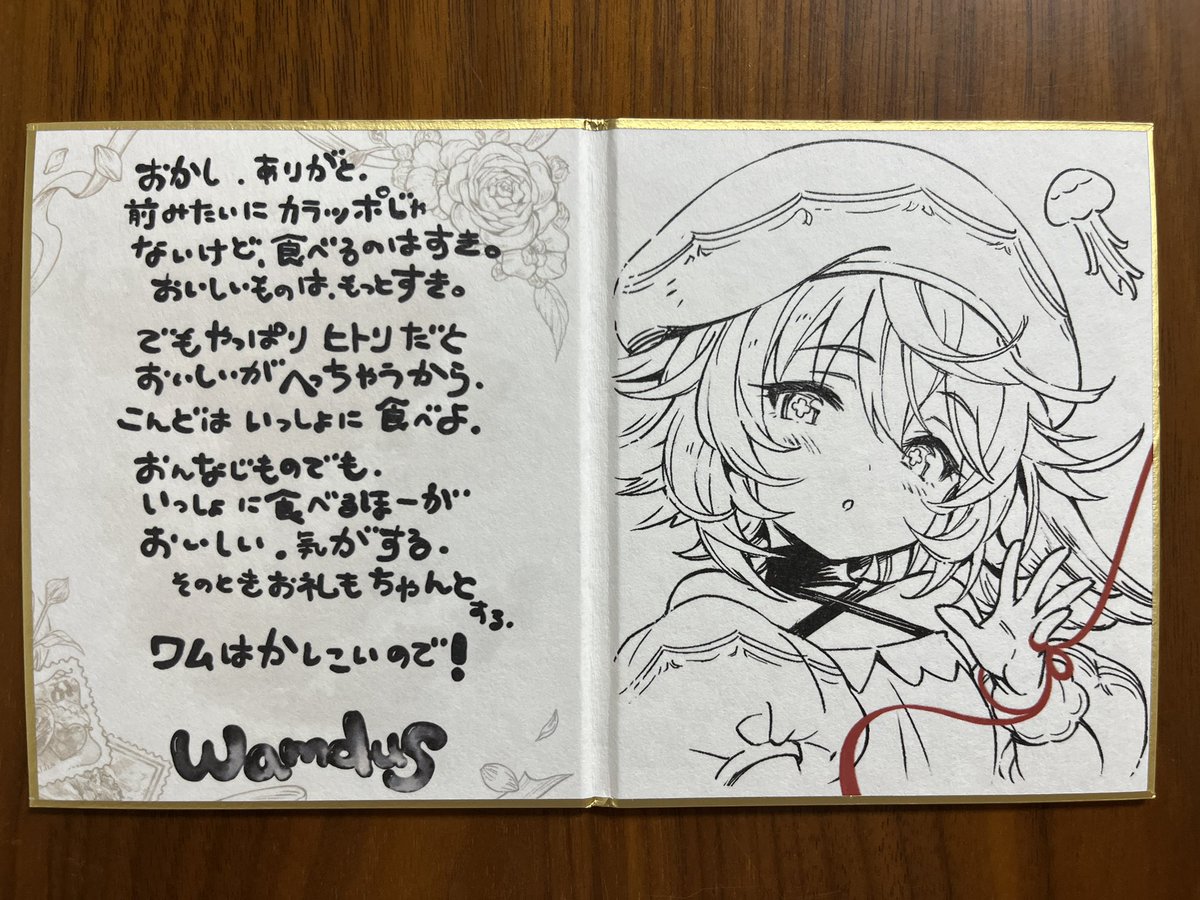 おかし．ありがと．
前みたいに カラッポじゃ
ないけど、食べるのはすき。
おいしいものは、もっとすき。
でもやっぱり ヒトリだと
おいしいがへっちゃうから．
こんどは いっしょに 食べよ．
おんなじものでも．
いっしょに食べるほーが
おいしい．気がする．
そのときお礼もちゃんと
する．
ワムはかしこいので！
Wamdus